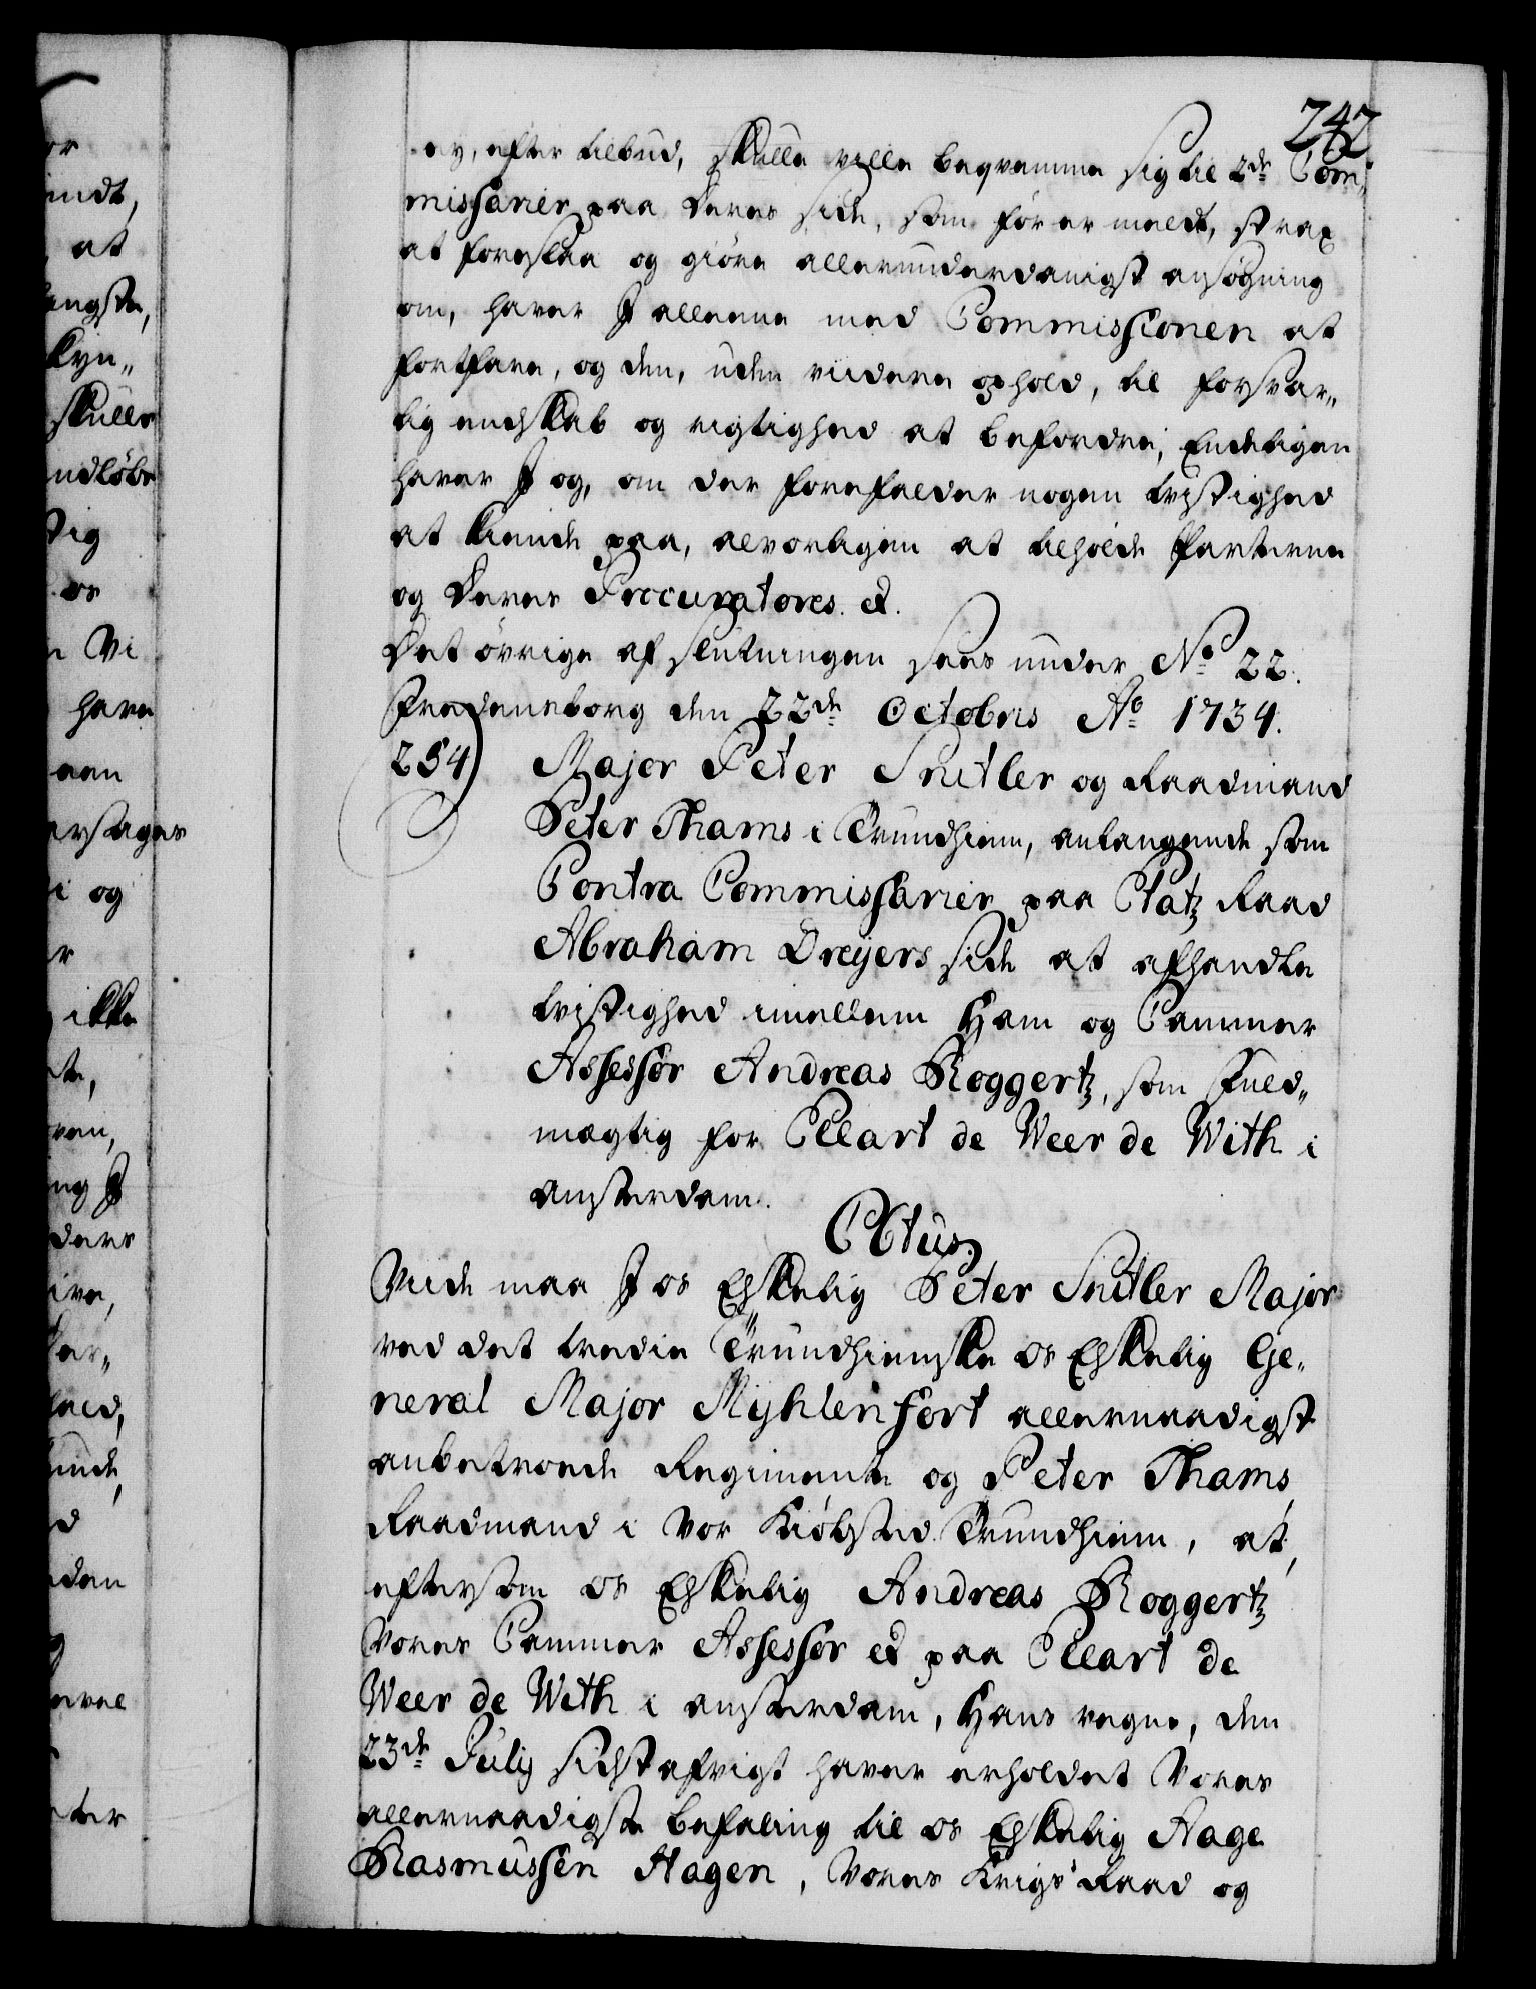 242
ey, efter tilbud, skulle ville beqvemme sig til 2de Com„
missarier paa deres side, som før er meldt, strax
at foreslaa og giøre allerunderdanigst ansøgning
om, haver I alleene med Commissionen at
fortfare, og den, uden viidere ophold, til forsvar„
lig endskab og rigtighed at befordre; Endeligen
haver I og, om der forefalder nogen tvistighed
at kiende paa, alvorligen at tilholde Parterne
og deres Procuratores. et.
Det øvrige af slutningen sees under No 22.
Fredensborg den 22de Octobris Ao 1734.
254) Major Peter Snitler og Raadmand
Peter Thams i Trundhiem, anlangende som
Contra Commissarier paa Etatz Raad
Abraham Dreÿers side at afhandle
tvistighed imellem Ham og Cammer
Assessor Andreas Roggertz, som Fuld„
mægtig for Ellart de Weer de With i
Amsterdam.
CVtus.
Viide maa I os Elskelig Peter Snitler Major
ved det tredie Trundhiemske os Elskelig Ge„
neral Major Myhlenfort allernaadigst
anbetroede Regimente og Peter Thams,
Raadmand i Vor Kiøbsted Trundhiem, at,
eftersom os Elskelig Andreas Roggertz
Vores Cammer Assessor et paa Ellart de
Weer de With i Amsterdam, Hans vegne, den
23de Julij sidstafvigt haver erholdet Vores
allernaadigste befaling til os Elskelig Aage
Rasmussen Hagen, Vores Krigs Raad og